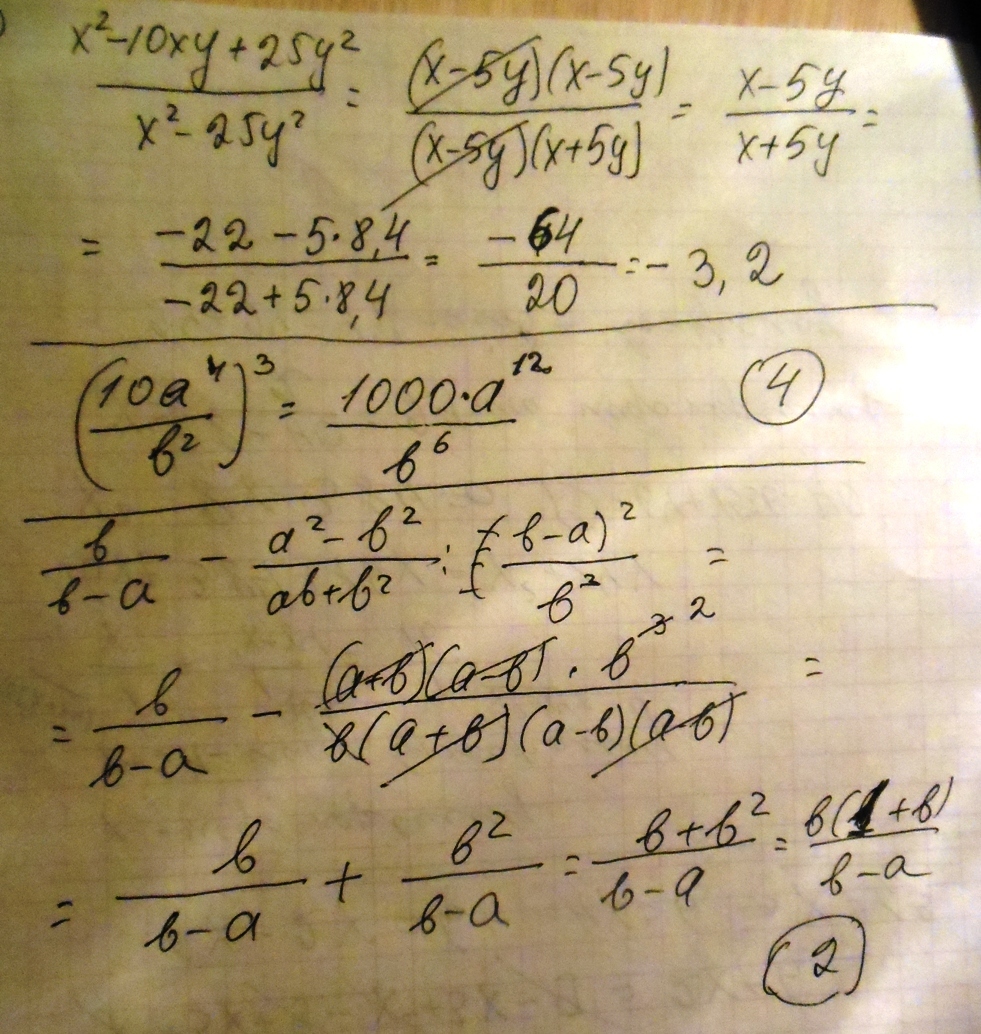 x²-10xy+25y² / x²-25y² = (x-5y)(x-5y) / (x-5y)(x+5y) = x-5y / x+5y =
= -22-5·8,4 / -22+5·8,4 = -64 / 20 = -3,2
(10a⁴ / b²)³ = 1000·a¹² / b⁶ 4
b / b-a - a²-b² / ab+b² : (b-a)² / b³ =
= b / b-a - (a+b)(a-b)·b³ 2 / b(a+b)(a-b)(a-b) =
= b / b-a + b² / b-a = b+b² / b-a = b(1+b) / b-a
2